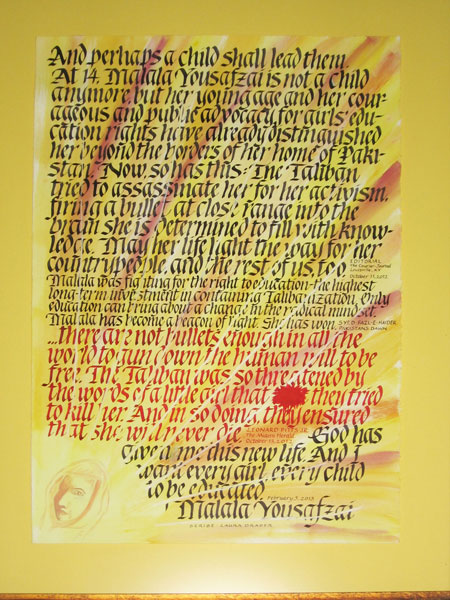 And perhaps a child shall lead them.
At 14, Malala Yousafzai is not a child
anymore, but her young age and her cour-
ageous and public advocacy for girls' edu-
cation rights have already distinguished
her beyond the borders of her home of Paki-
stan. Now, so has this: The Taliban
tried to assassinate her for her activism,
firing a bullet at close range into the
brain she is determined to fill with know-
ledge. May her life light the way for her
countrypeople, and the rest of us, too.
EDITORIAL
The Courier-Journal
Louisville, KY
October 11, 2012
Malala was fighting for the right to education-the highest
long-term investment in containing Talibanization. Only
education can bring about a change in the radical mindset.
Malala has become a beacon of light. She has won. SYED FAZL-E-HAIDER
PAKISTAN'S DAWN
...there are not bullets enough in all the
world to gun down the human will to be
free. The Taliban was so threatened by
the words of a little girl that they tried
to kill her. And in so doing, they ensured
that she will never die.
LEONARD PITTS JR.
The Miami Herald
October 13, 2012
God has
give n me this new life. And I
want every girl, every child
to be educated.
February 3, 2013
Malala Yousafzai
SCRIBE LAURA DRAPER